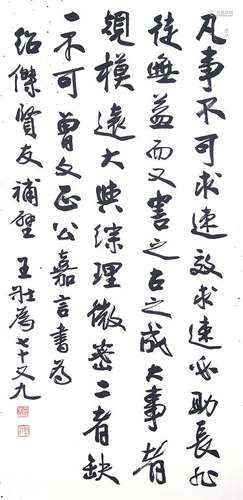 凡事不可求速效求速必助長非
徒無益而又害之古之成大事者
規模遠大與綜理微密二者缺
一不可曾文正公嘉言書為
紹傑賢友補壁 王壯為七十又九